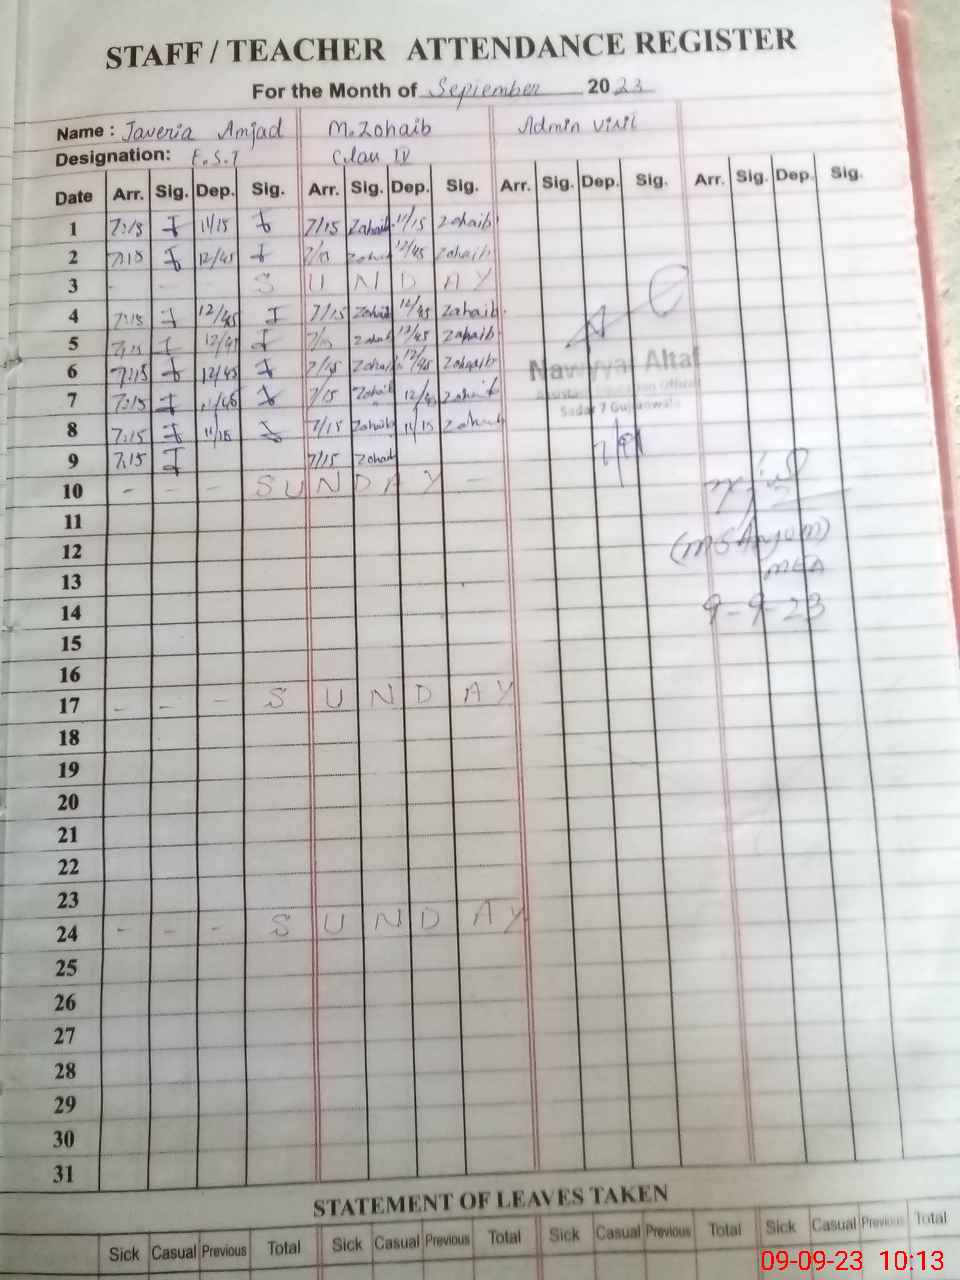 STAFF / TEACHER ATTENDANCE REGISTER
For the Month of September 2023
Name : Javeria Amjad M. Zohaib Admin visit
Designation: E.S.T Class IV
Date Arr. Sig. Dep. Sig. Arr. Sig. Dep. Sig. Arr. Sig. Dep. Sig. Arr. Sig. Dep. Sig.
1 7:15 11/15 7/15 Zohaib 11/15 Zohaib
2 7:15 12/45 12/45 Zohaib
3 - - - S U N D A Y
4 7:15 12/45 7/15 Zohaib 12/45 Zohaib
5 7:15 12/45 Zohaib 12/45 Zohaib
6 7:15 12/45 7/15 Zohaib 12/45 Zohaib
Nayyar Altaf
7 7:15 7/15 Zohaib 12/45 Zohaib
8 7:15 11/15 7/15 Zohaib 11/15 Zohaib
9 7:15 7/15 Zohaib
10 - - - S U N D A Y -
11
12 (M S Anjum)
13 MEA
14 9-9-23
15
16
17 - - - S U N D A Y
18
19
20
21
22
23
24 - - - S U N D A Y
25
26
27
28
29
30
31
STATEMENT OF LEAVES TAKEN
Sick Casual Previous Total Sick Casual Previous Total Sick Casual Previous Total Sick Casual Previous Total
09-09-23 10:13